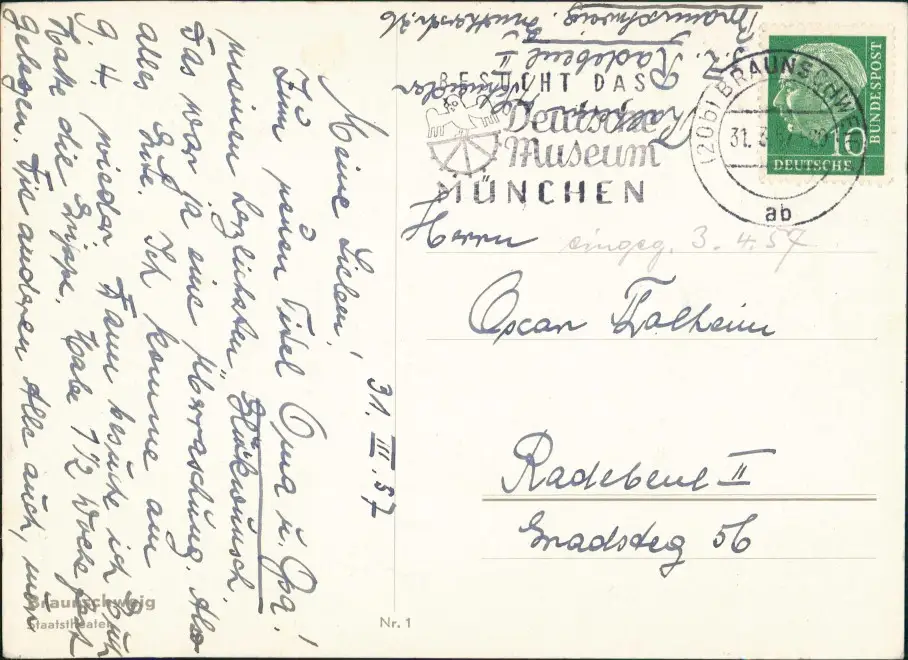 31. III. 57
Meine Lieben!
Zum neuen Titel Oma u. Opa!
meinen herzlichsten Glückwunsch.
Das war ja eine Überraschung. Also
alles Gute. Ich komme am
9.4. wieder. Dann besuche ich Euch
Hatte die Grippe. Habe 1 1/2 Woche fest
gelegen. Die anderen Alle auch, nur
Braunschweig
Staatstheater
Nr. 1
Braunschweig.
z. Z. Radebeul II
BESUCHT DAS
Deutsche
Museum
MÜNCHEN
(20b) BRAUNSCHWEIG
31. 3. 57
ab
10
DEUTSCHE
BUNDESPOST
Herrn
eingeg. 3.4.57
Oscar Thalheim
Radebeul II
Gradsteg 56